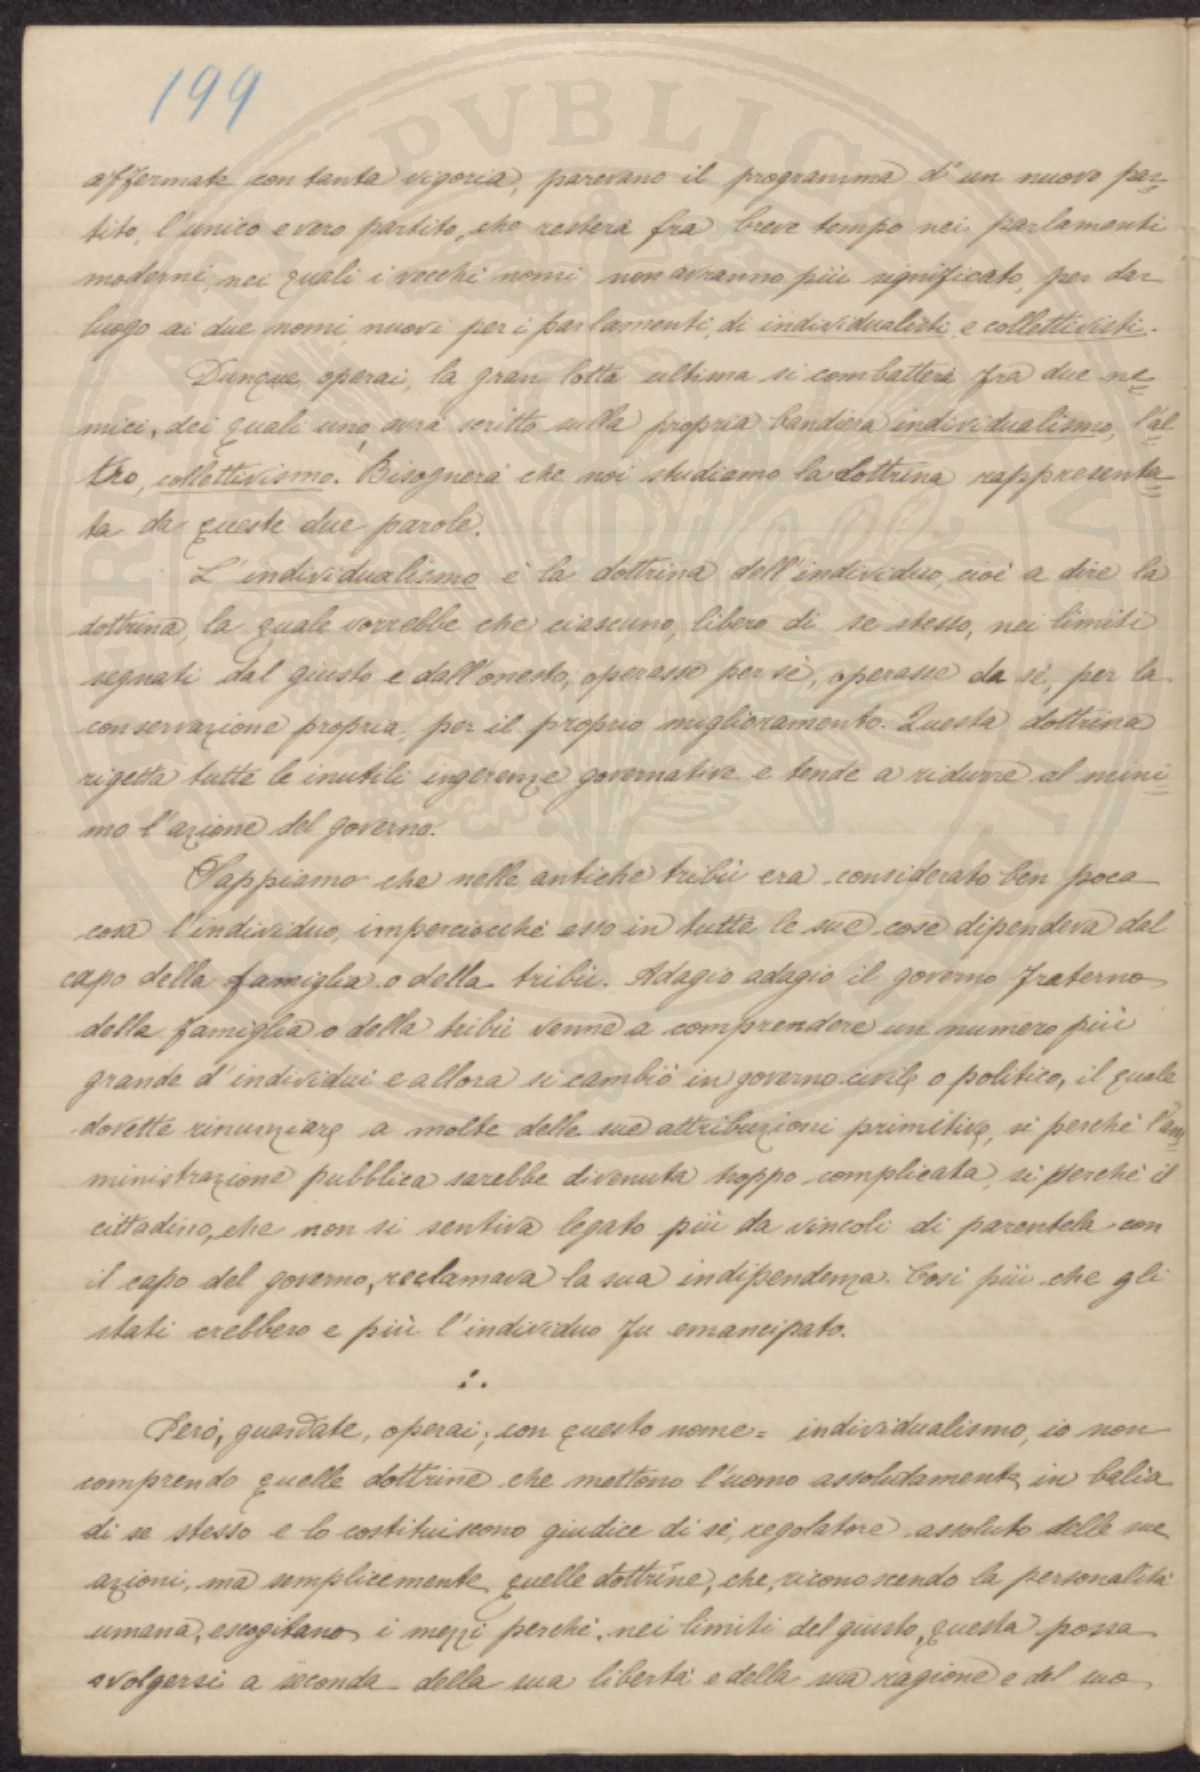 199
affermate con tanta vigoria, parevano il programma d'un nuovo par=
tito, l'unico e vero partito, che resterà fra breve tempo nei parlamenti
moderni, nei quali i vecchi nomi non avranno più significato, per dar
luogo ai due nomi, nuovi per i parlamenti, di individualisti e collettivisti.
Dunque, operai, la gran lotta ultima si combatterà fra due ne=
mici, dei quali uno, avrà scritto sulla propria bandiera individualismo, l'al=
tro, collettivismo. Bisognerà che noi studiamo la dottrina rappresenta=
ta da queste due parole.
L'individualismo è la dottrina dell'individuo, cioè a dire la
dottrina, la quale vorrebbe che ciascuno, libero di se stesso, nei limiti
segnati dal giusto e dall'onesto, operasse per sè, operasse da sè, per la
conservazione propria, per il proprio miglioramento. Questa dottrina
rigetta tutte le inutili ingerenze governative e tende a ridurre al mini=
mo l'azione del governo.
Sappiamo che nelle antiche tribù era considerato ben poca
cosa l'individuo, imperciocchè esso in tutte le sue cose dipendeva dal
capo della famiglia o della tribù. Adagio adagio il governo fraterno
della famiglia o della tribù venne a comprendere un numero più
grande d'individui e allora si cambiò in governo civile o politico, il quale
dovette rinunziare a molte delle sue attribuzioni primitive, sì perchè l'am=
ministrazione pubblica sarebbe divenuta troppo complicata, sì perchè il
cittadino, che non si sentiva legato più da vincoli di parentela con
il capo del governo, reclamava la sua indipendenza. Così più che gli
stati crebbero e più l'individuo fu emancipato.
∴
Però, guardate, operai; con questo nome = individualismo, io non
comprendo quelle dottrine che mettono l'uomo assolutamente in balìa
di se stesso e lo costituiscono giudice di sè, regolatore assoluto delle sue
azioni, ma semplicemente quelle dottrine, che, riconoscendo la personalità
umana, escogitano i mezzi perchè, nei limiti del giusto, questa possa
svolgersi a seconda della sua libertà e della sua ragione e del suo